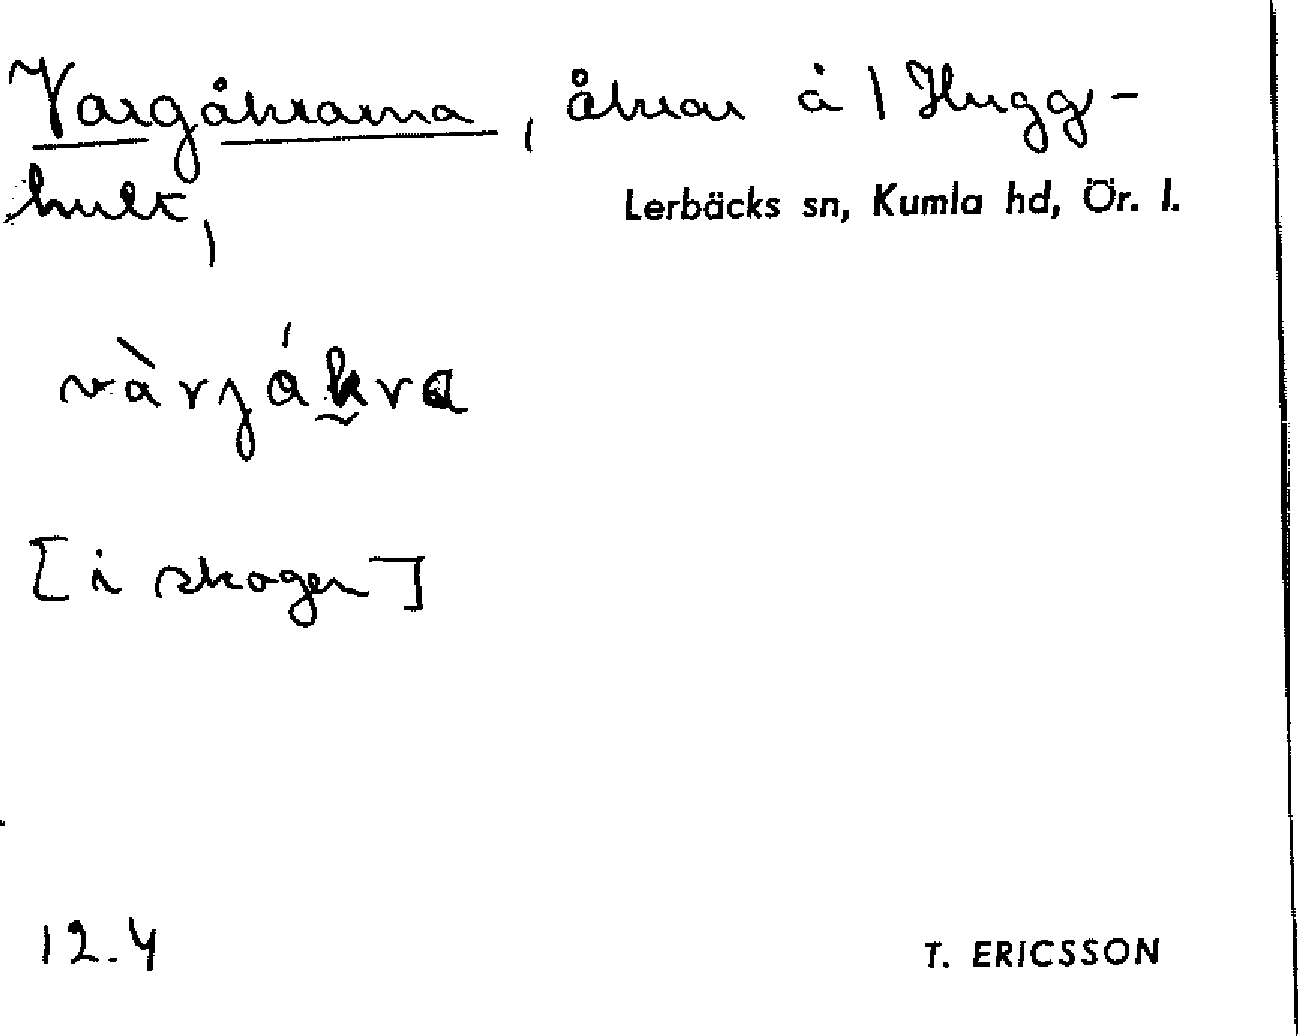 Vargåkrarna, åkrar å 1 Hugg-
hult,
Lerbäcks sn, Kumla hd, Ör. l.
[i skogen]
12.4
T. ERICSSON